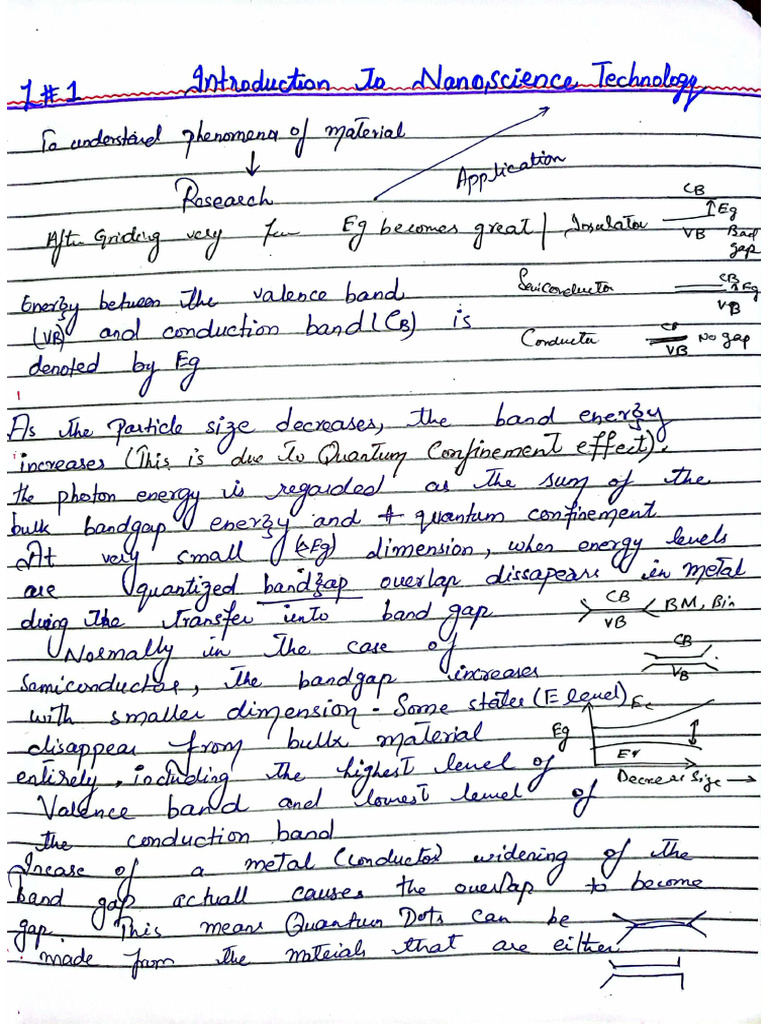 L#1 Introduction To Nano,science Technology
To understand phenomena of material
Research
Application
After Griding very Eg becomes great | Insulator CB Eg VB Bad gap
Energy between the valence band Semiconductor CB Eg VB
(VB) and conduction band (CB) is Conductor CB VB No gap
denoted by Eg
As the Particle size decreases, the band energy
increases (This is due To Quantum Confinement effect).
the photon energy is regarded as the sum of the
bulk bandgap energy and quantum confinement
At very small (ΔEg) dimension, when energy levels
are quantized bandgap overlap dissapears in metal
the transfer into band gap CB VB BM, Bin
Normally in the case of CB
semiconductor, the bandgap increases VB
with smaller dimension - Some states (E level) Ec
disappear from bulk material Eg
entirely, including the highest level of Ev
Valence band and lowest level of Decrease Size →
the conduction band
Incase of a metal (conductor) widening of the
band gap actuall causes the overlap to become
gap. This means Quantum Dots can be
made from the materials that are either